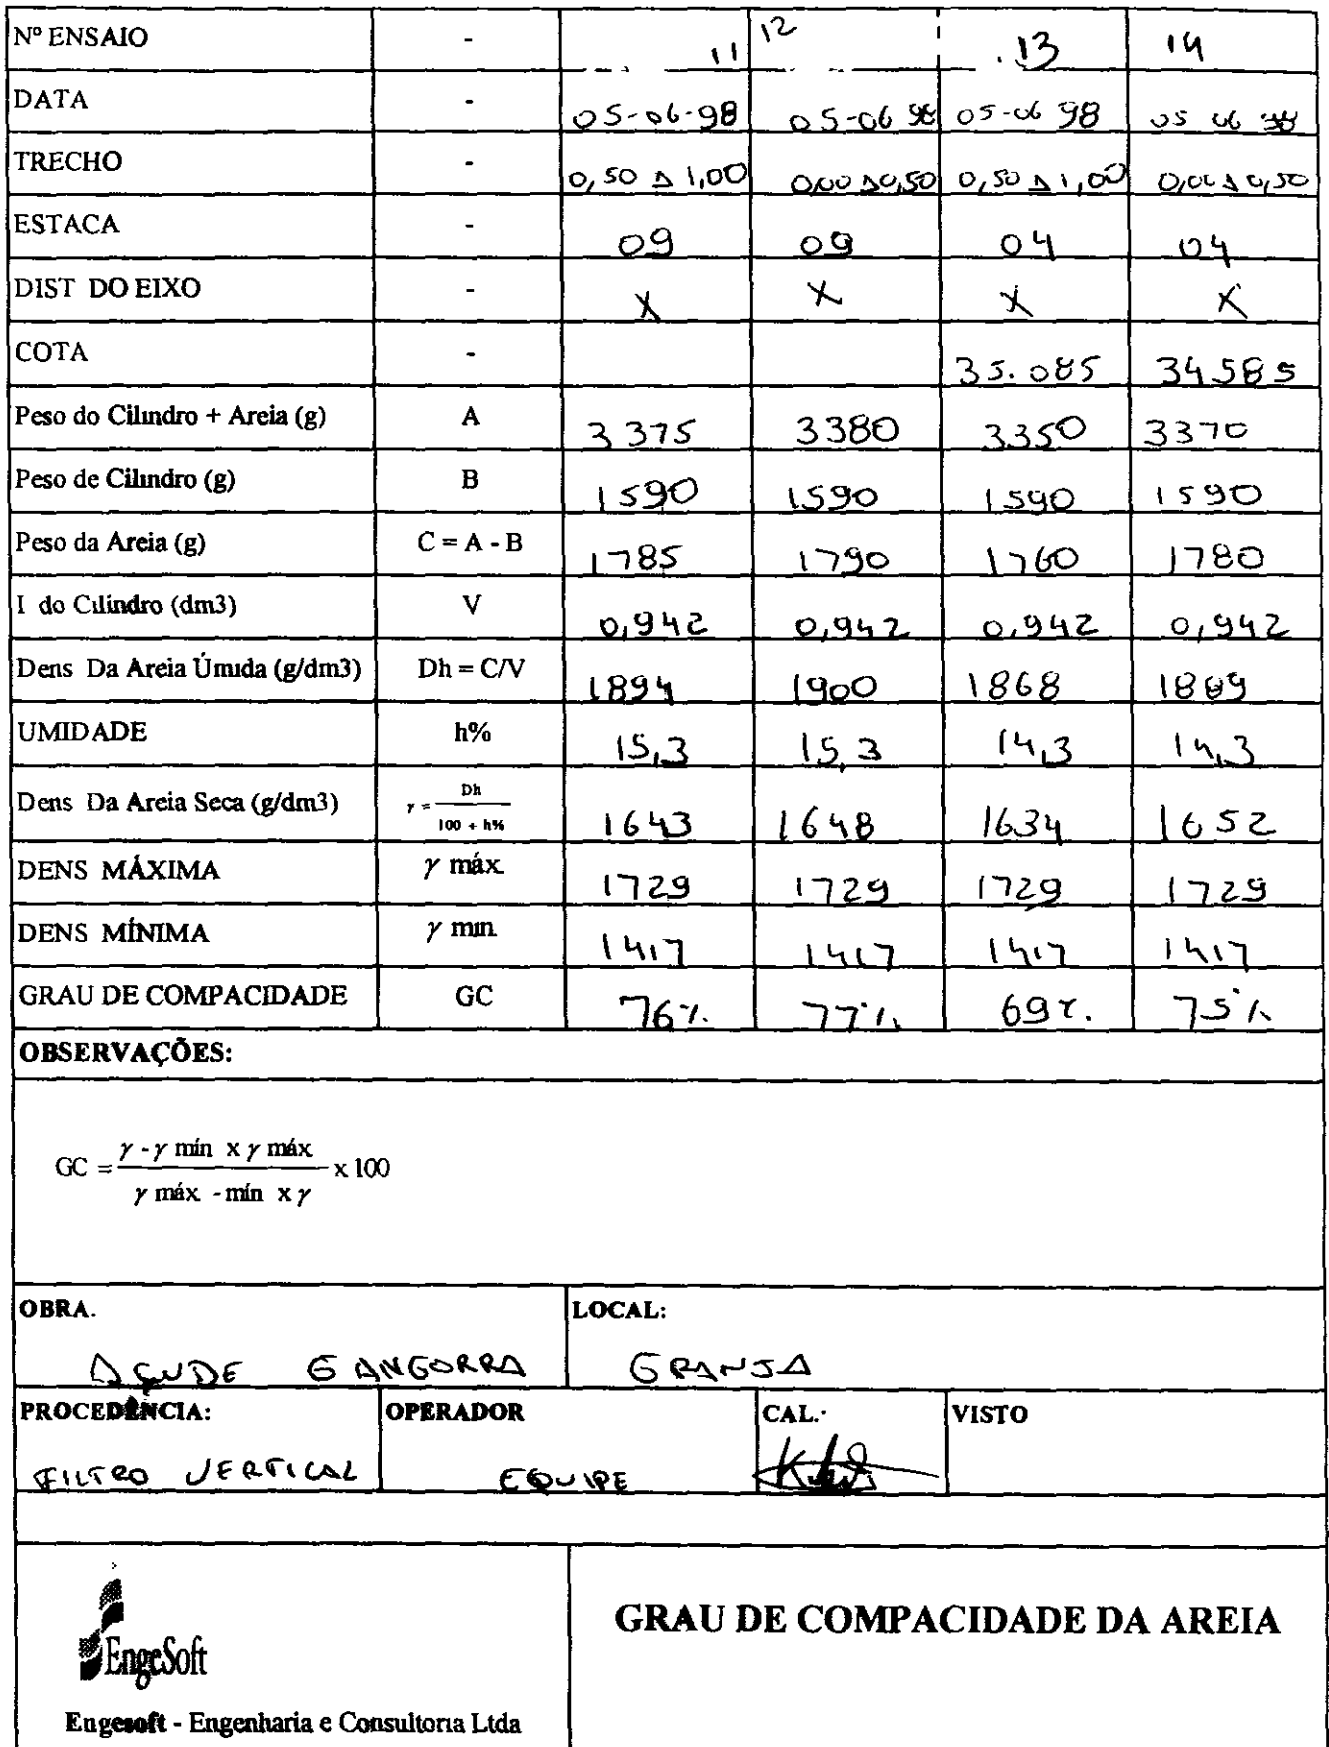 Nº ENSAIO - 11 12 13 14
DATA - 05-06-98 05-06 98 05-06 98 05 06 98
TRECHO - 0,50 A 1,00 0,00 A 0,50 0,50 A 1,00 0,00 A 0,50
ESTACA - 09 09 04 04
DIST DO EIXO - X X X X
COTA - 35.085 34585
Peso do Cilindro + Areia (g) A 3375 3380 3350 3370
Peso de Cilindro (g) B 1590 1590 1590 1590
Peso da Areia (g) C = A - B 1785 1790 1760 1780
I do Cilindro (dm3) V 0,942 0,942 0,942 0,942
Dens Da Areia Úmida (g/dm3) Dh = C/V 1894 1900 1868 1889
UMIDADE h% 15,3 15,3 14,3 14,3
Dens Da Areia Seca (g/dm3) γ = Dh / 100 + h% 1643 1648 1634 1652
DENS MÁXIMA γ máx. 1729 1729 1729 1729
DENS MÍNIMA γ min. 1417 1417 1417 1417
GRAU DE COMPACIDADE GC 76% 77% 69% 75%
OBSERVAÇÕES:
γ - γ mín x γ máx
GC = x 100
γ máx. - mín x γ
OBRA. LOCAL:
AÇUDE GANGORRA GRANJA
PROCEDÊNCIA: OPERADOR CAL.· VISTO
FILTRO VERTICAL EQUIPE
GRAU DE COMPACIDADE DA AREIA
EngeSoft
Engesoft - Engenharia e Consultoria Ltda